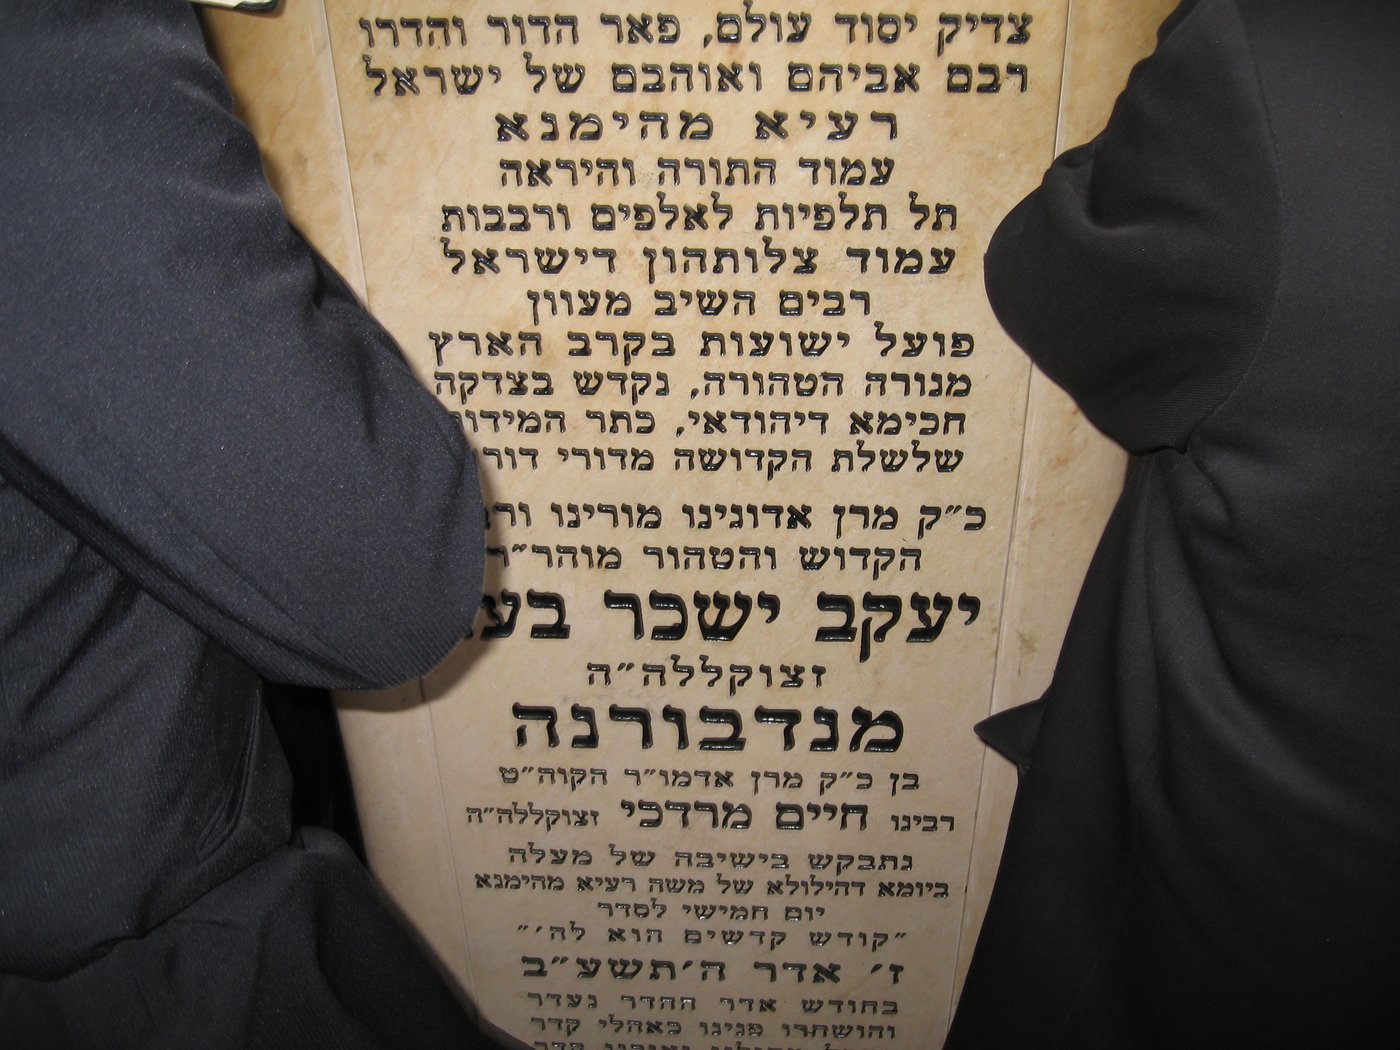 צדיק יסוד עולם, פאר הדור והדרו
רבם אביהם ואוהבם של ישראל
רעיא מהימנא
עמוד התורה והיראה
תל תלפיות לאלפים ורבבות
עמוד צלותהון דישראל
רבים השיב מעוון
פועל ישועות בקרב הארץ
מנורה הטהורה, נקדש בצדקה
חכימא דיהודאי, כתר המידו
שלשלת הקדושה מדורי דור
כ״ק מרן אדונינו מורינו
הקדוש והטהור מוהר״ר
יעקב ישכר בע
זצוקללה״ה
מנדבורנה
בן כ״ק מרן אדמו״ר הקוה״ט
רבינו חיים מרדכי זצוקללה״ה
נתבקש בישיבה של מעלה
ביומא דהילולא של משה רעיא מהימנא
יום חמישי לסדר
״קודש קדשים הוא לה׳״
ז׳ אדר ה׳תשע״ב
בחודש אדר ההדר נעדר
והושחרו פנינו כאהלי קדר